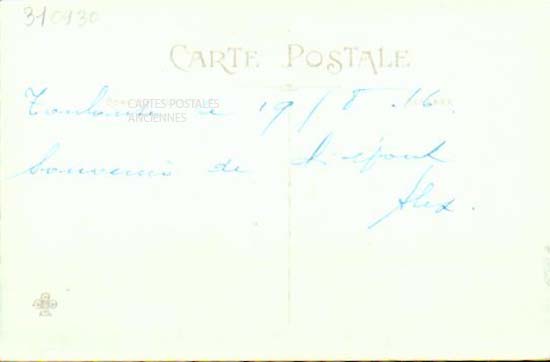 310930
CARTE POSTALE
CARTES POSTALES
ANCIENNES
le 19/8.16.
Souvenir de
Alex.